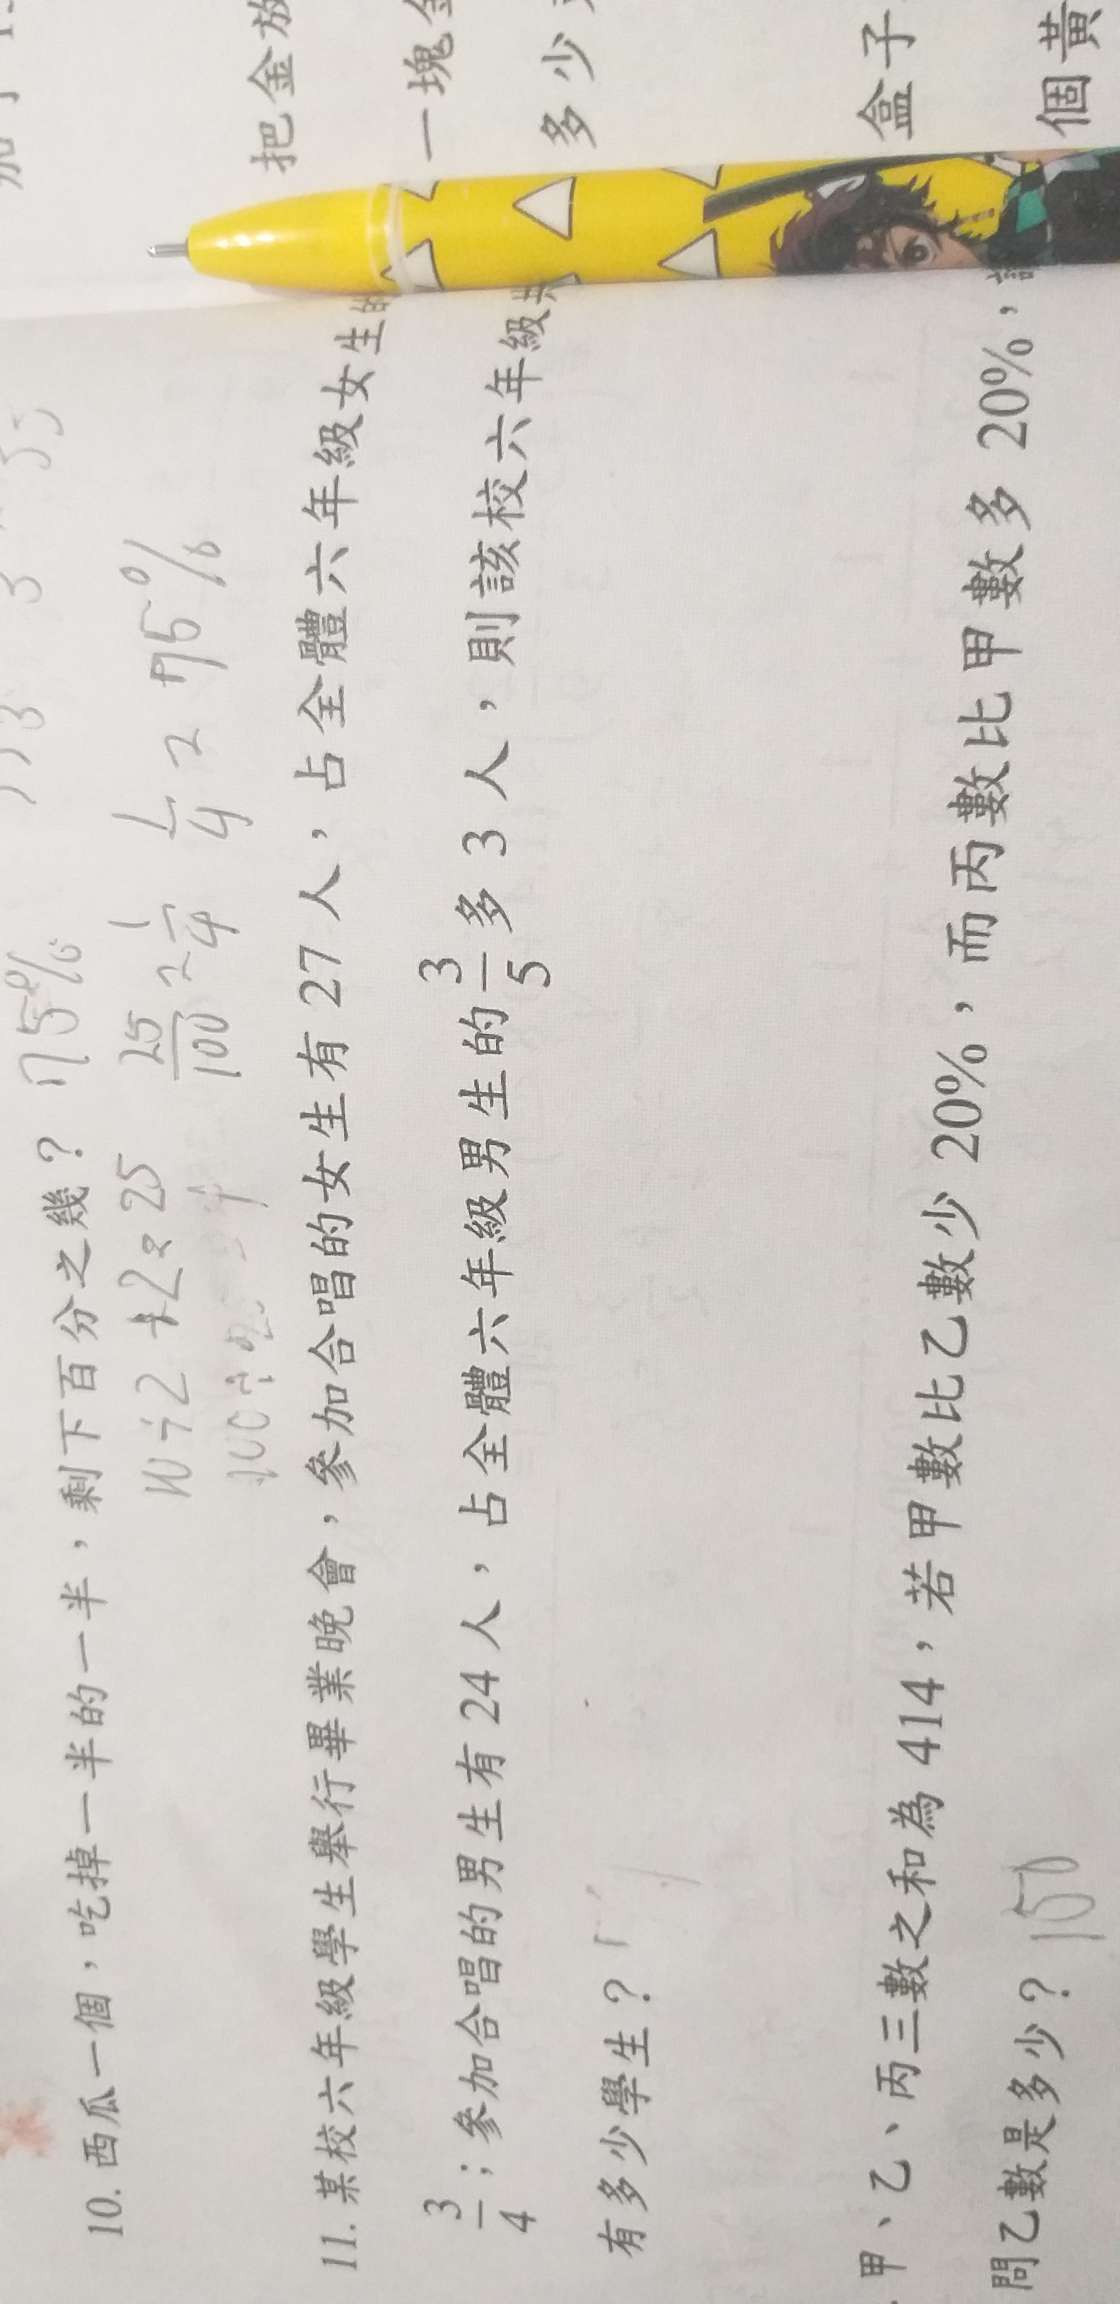 把金放
一塊金
多少
盒子
個黃
10. 西瓜一個，吃掉一半的一半，剩下百分之幾？ 75%
25/100 = 1/4
75%
11. 某校六年級學生舉行畢業晚會，參加合唱的女生有 27 人，占全體六年級女生的
3/4；參加合唱的男生有 24 人，占全體六年級男生的 3/5 多 3 人，則該校六年級共
有多少學生？
甲、乙、丙三數之和為 414，若甲數比乙數少 20%，而丙數比甲數多 20%，
問乙數是多少？ 150